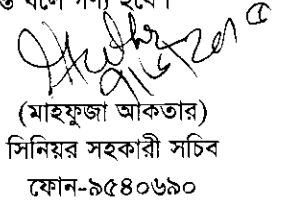 বলে গণ্য হবে।
(মাহফুজা আকতার)
সিনিয়র সহকারী সচিব
ফোন-৯৫৪০৬৯০